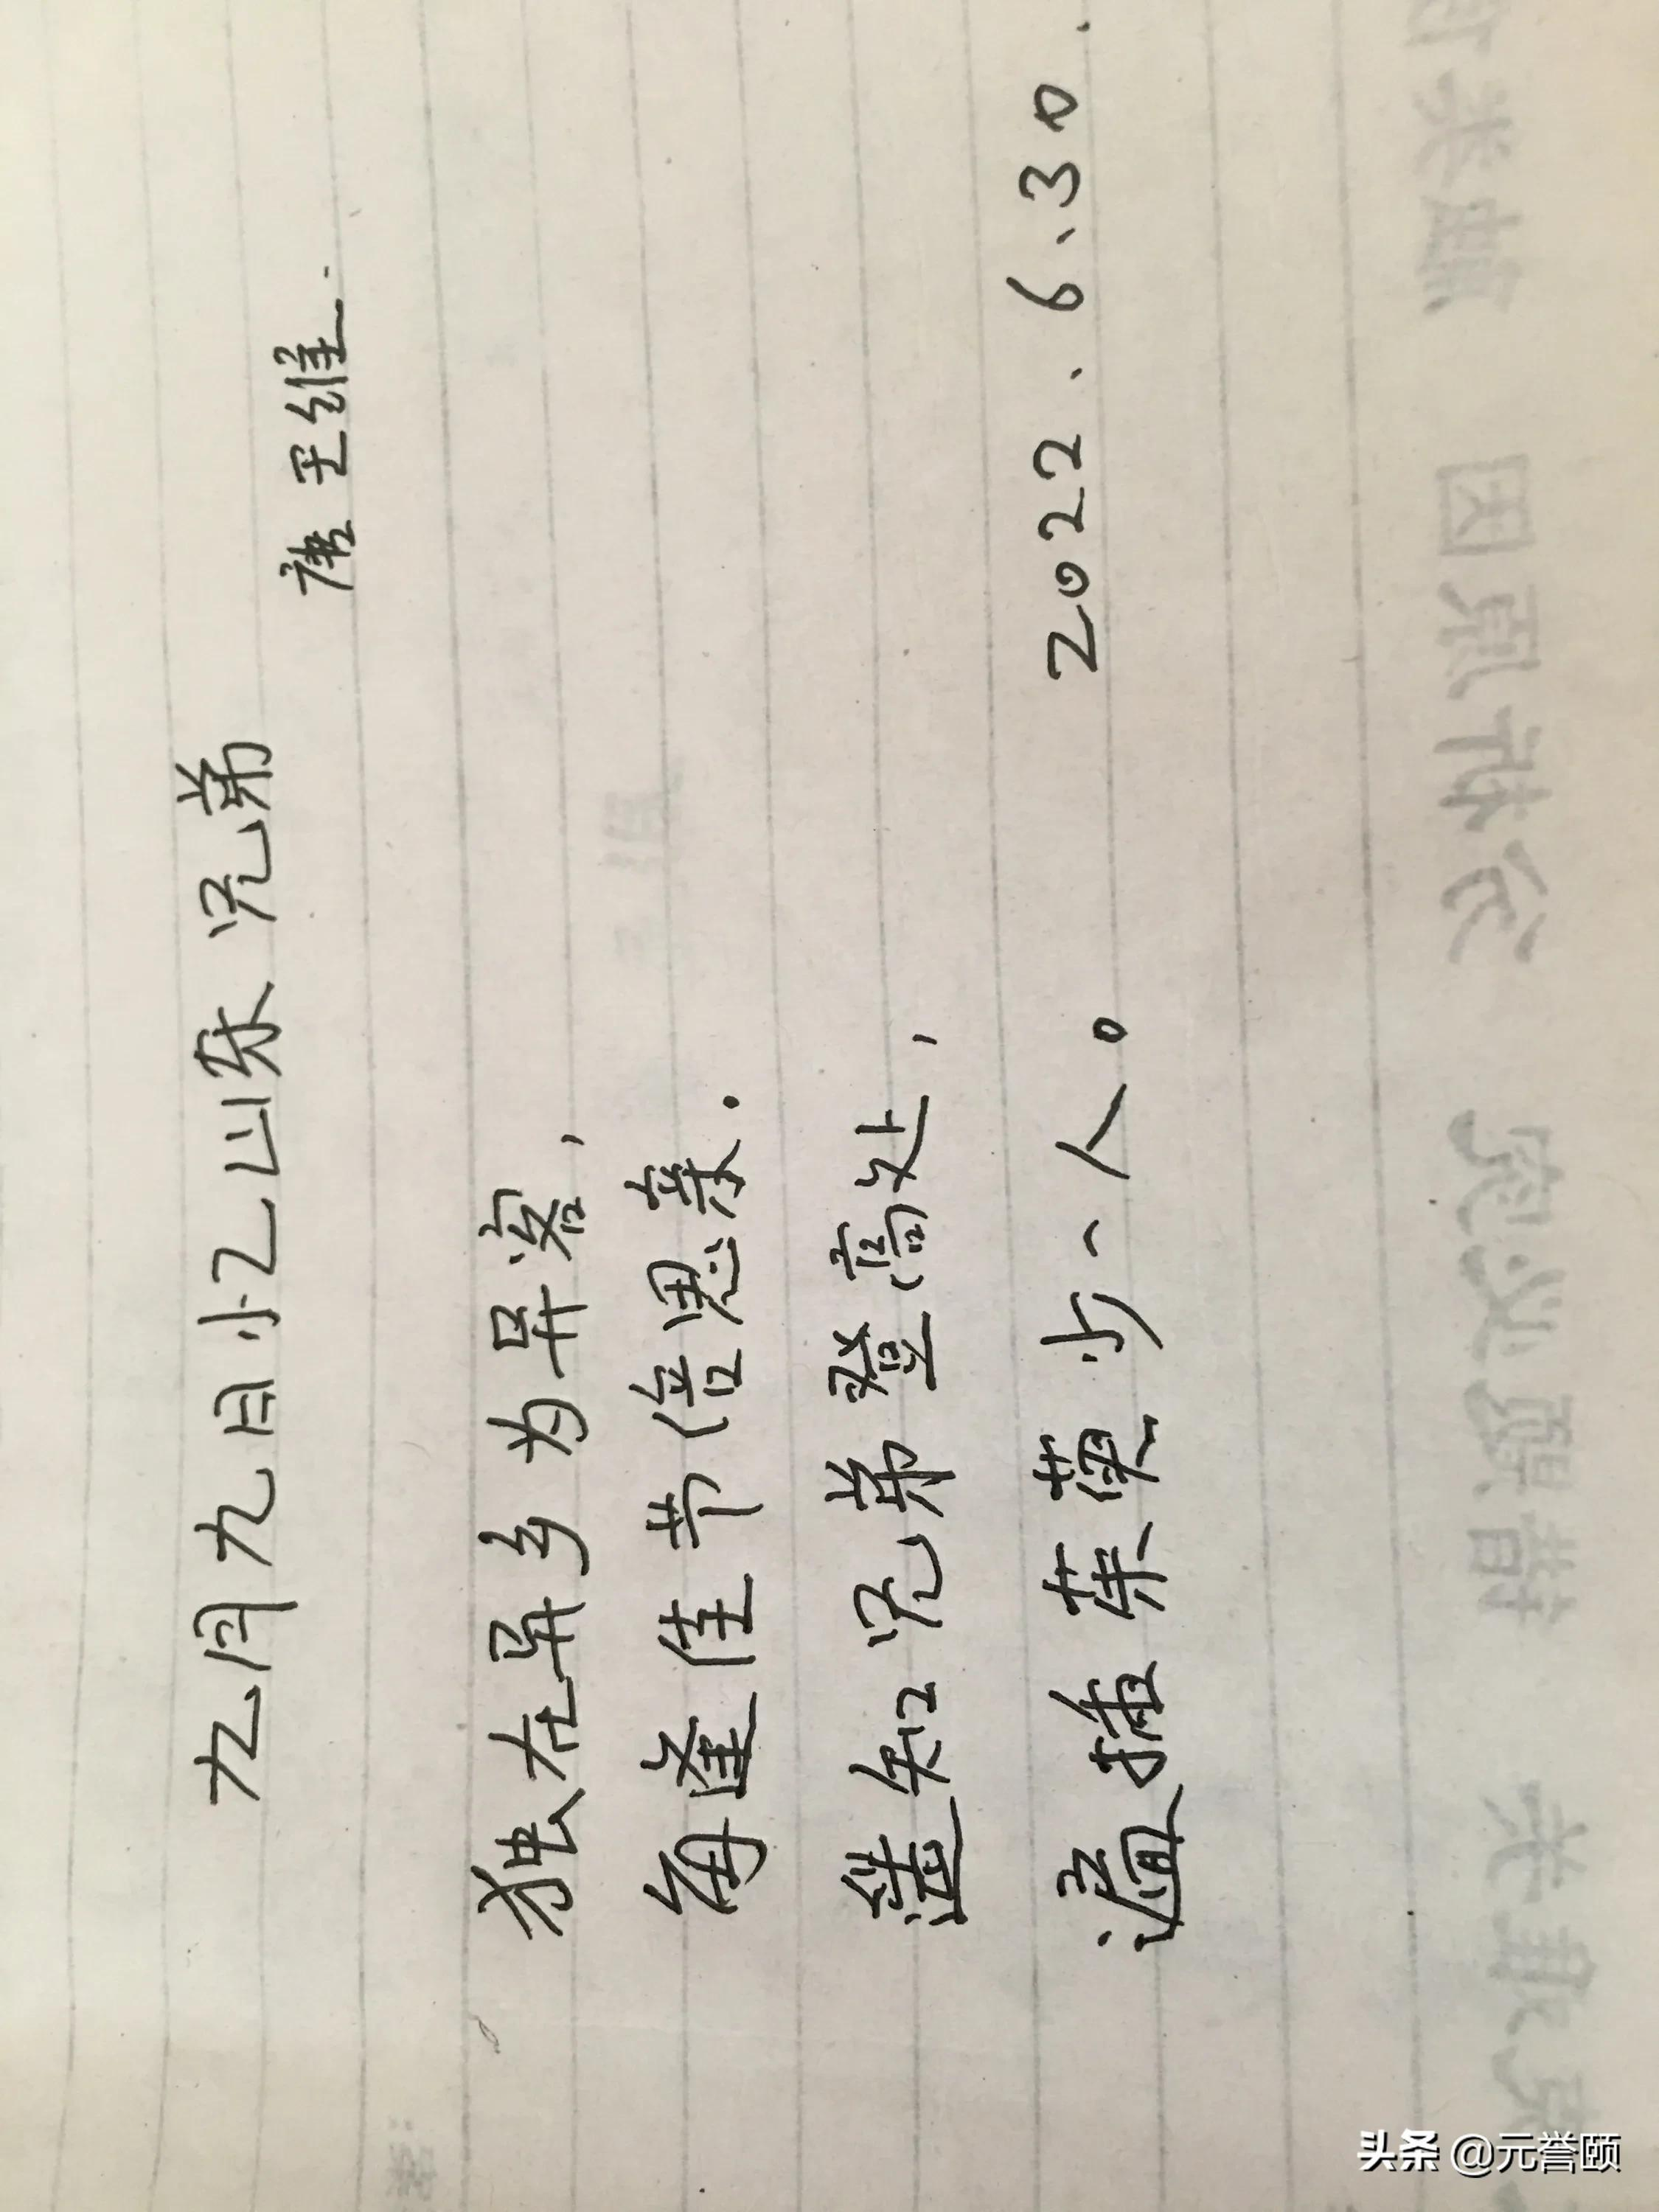 九月九日忆山东兄弟
唐 王维.
独在异乡为异客,
每逢佳节倍思亲.
遥知兄弟登高处,
遍插茱萸少一人。
2022.6.30.
头条 @元誉颐